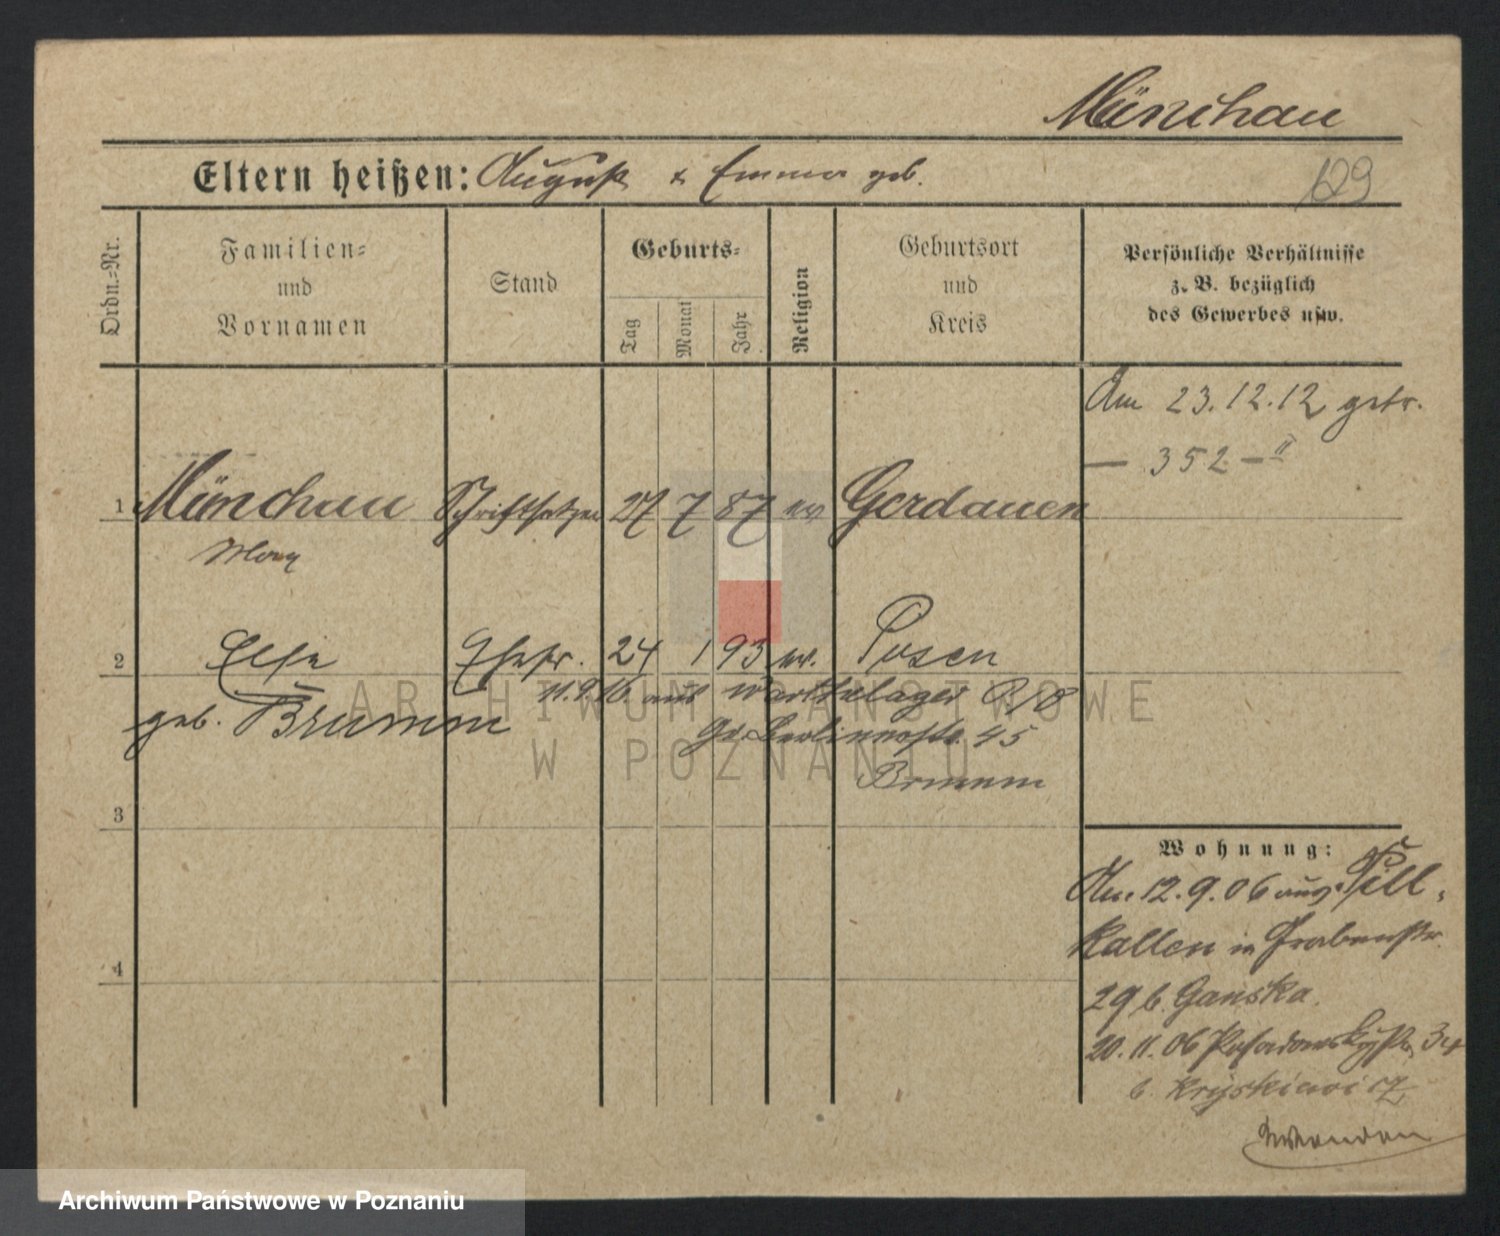 Münchau
Eltern heißen: August & Emma geb.
129
Ordn.-Nr.
Familien-
und
Vornamen
Stand
Geburts-
Tag
Monat
Jahr
Religion
Geburtsort
und
Kreis
Persönliche Verhältnisse
z. B. bezüglich
des Gewerbes usw.
Am 23.12.12 getr.
— 352 — II
1 Münchau Schriftsetzer 27 7 87 ev Gerdauen
Max
2 Else Ehefr. 24 1 93 ev. Posen
11.9.16. aus Warthelager
geb. Brumm
Gr. Berlinerstr. 45
Brumm
3
Wohnung:
Am. 12.9.06 aus Pill-
kallen in Grabenstr.
29 b. Ganska.
4
20.11.06 34
b. Kryskiewicz
Wenden
ARCHIWUM PAŃSTWOWE
W POZNANIU
Archiwum Państwowe w Poznaniu